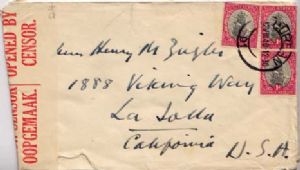 OPENED BY
CENSOR.
OOPGEMAAK.
Henry M Zeigler
1888 Viking Way
La Jolla
California
U.S.A